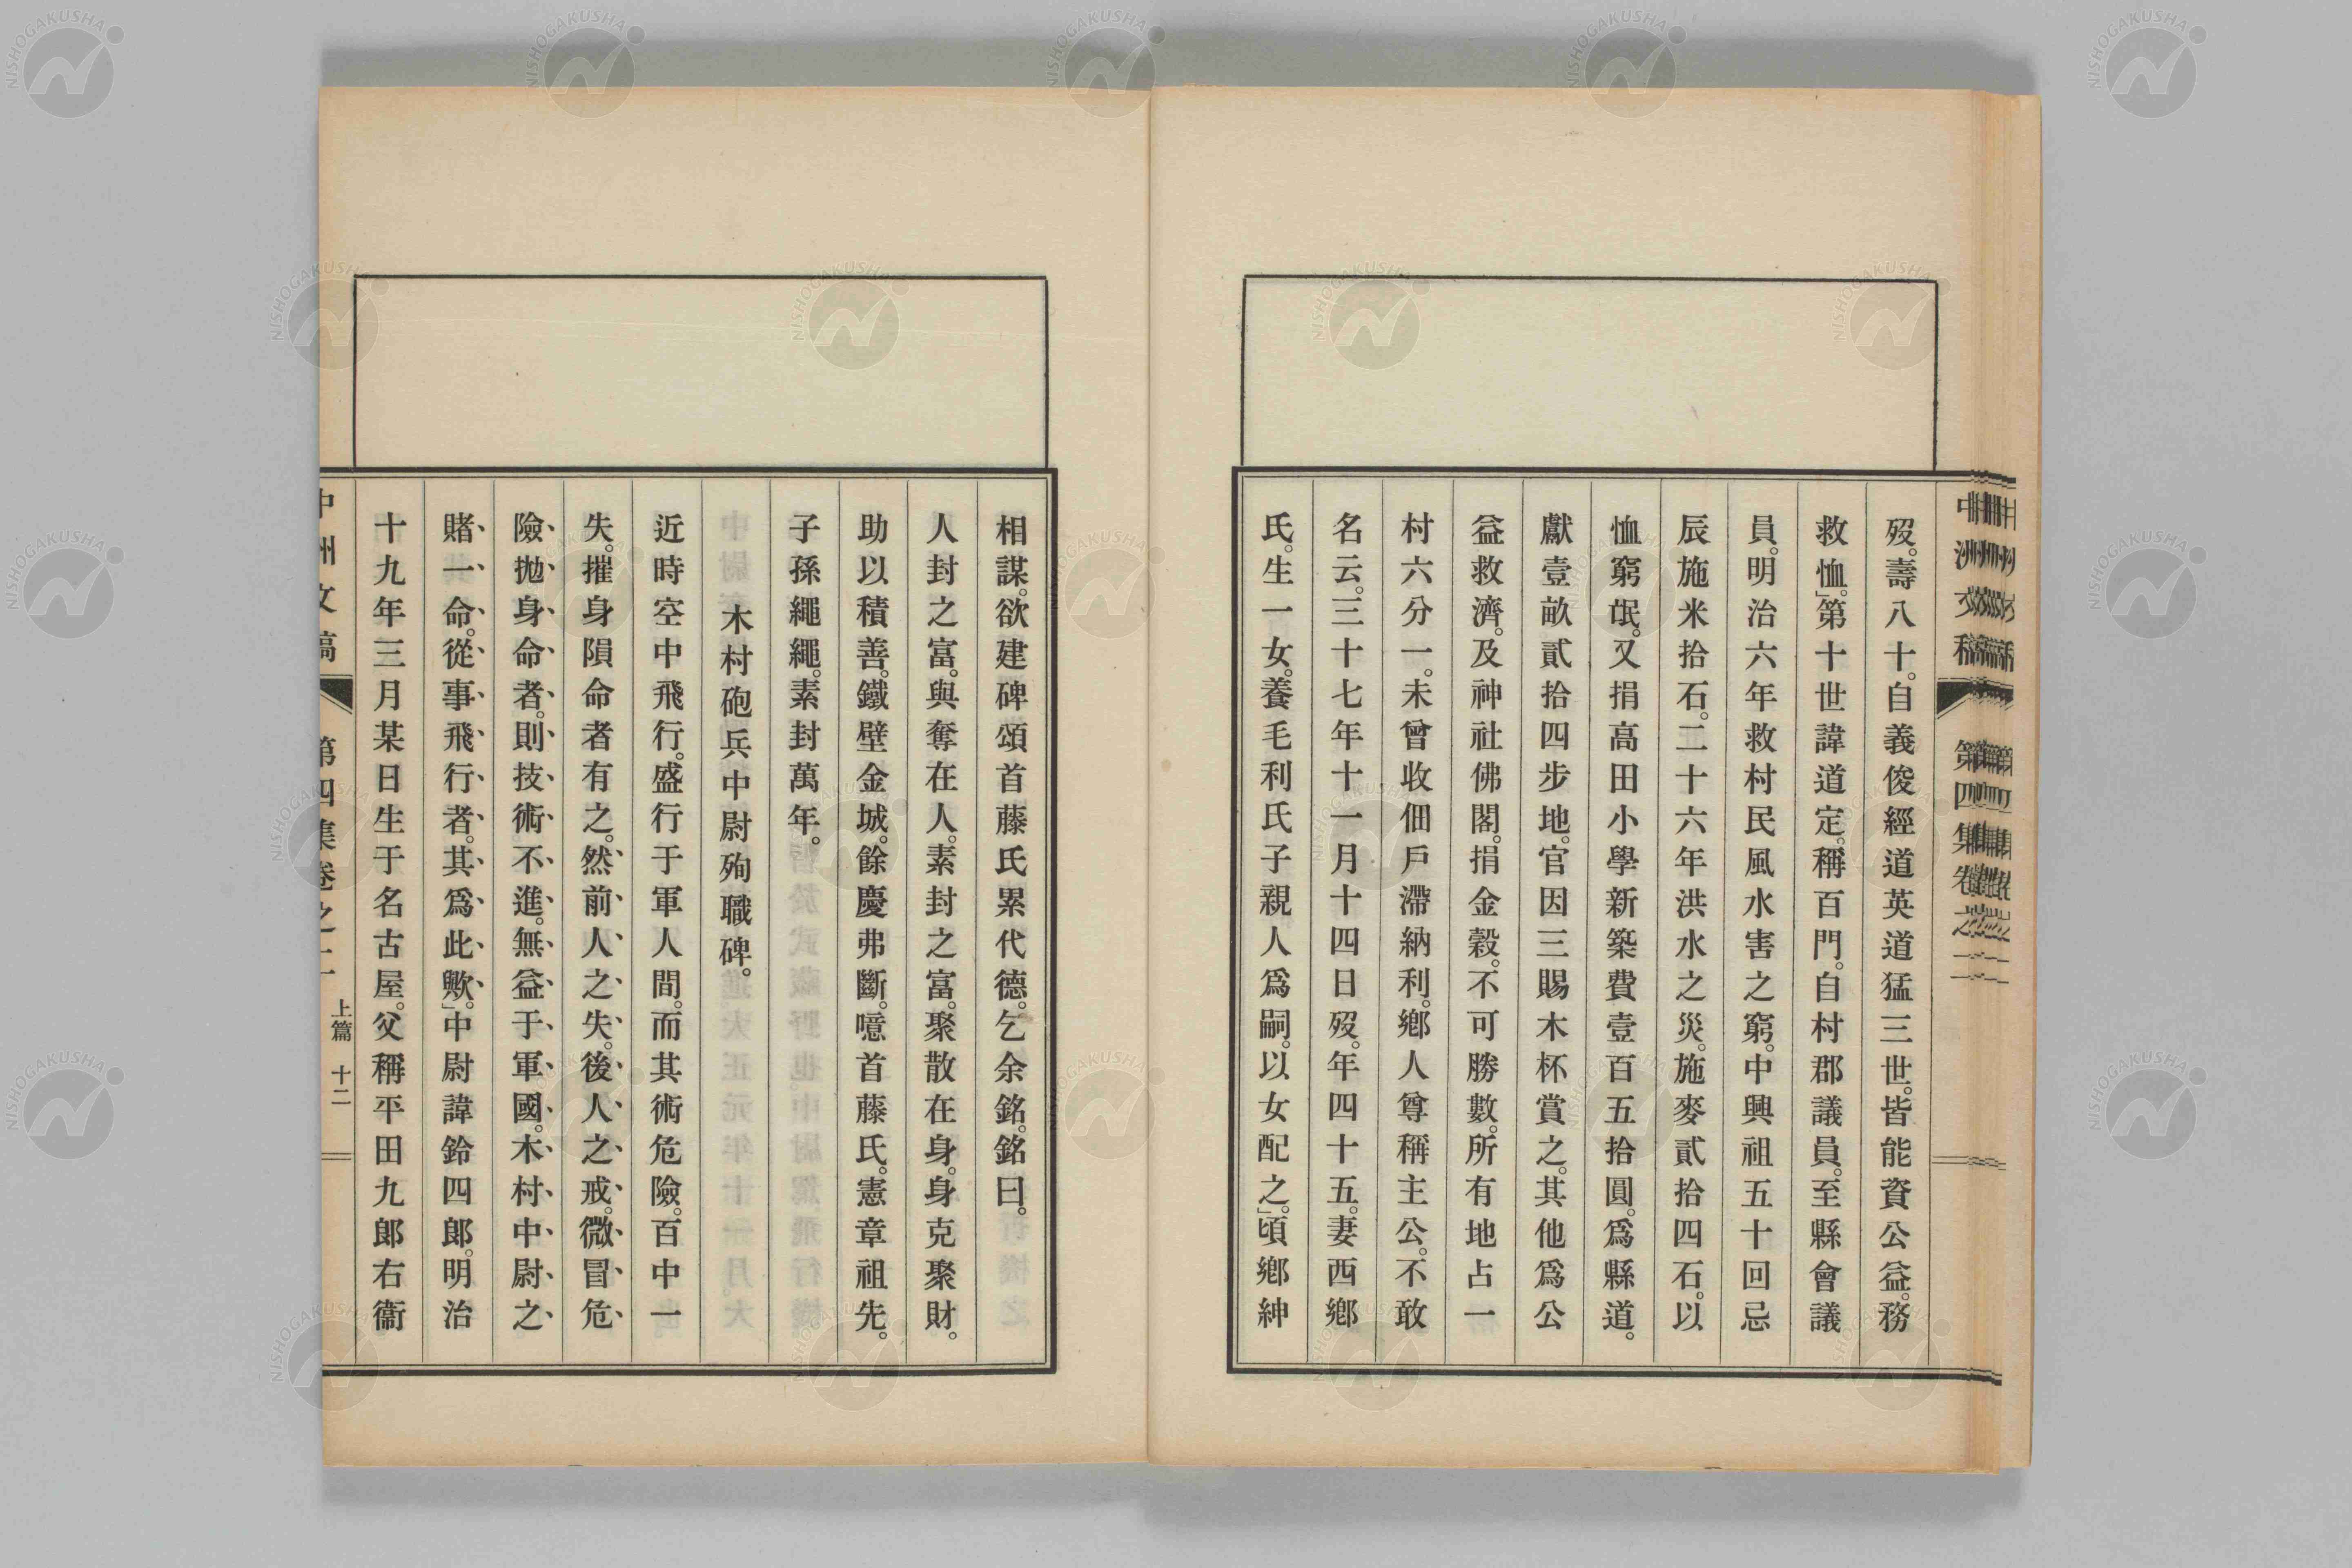 歿。壽八十。自義俊經道英道猛三世。皆能資公益。務
救恤。」第十世諱道定。稱百門。自村郡議員。至縣會議
員。明治六年救村民風水害之窮。中興祖五十回忌
辰施米拾石。二十六年洪水之災。施麥貳拾四石。以
恤窮氓。又捐高田小學新築費壹百五拾圓。爲縣道。
獻壹畝貳拾四步地。官因三賜木杯賞之。其他爲公
益救濟。及神社佛閣。捐金穀。不可勝數。所有地占一
村六分一。未曾收佃戶滯納利。鄕人尊稱主公。不敢
名云。三十七年十一月十四日歿。年四十五。妻西鄕
氏。生一女。養毛利氏子親人爲嗣。以女配之。」頃鄕紳
相謀。欲建碑頌首藤氏累代德。乞余銘。銘曰。
人封之富。與奪在人。素封之富。聚散在身。身克聚財。
助以積善。鐵壁金城。餘慶弗斷。噫首藤氏。憲章祖先。
子孫繩繩。素封萬年。
木村砲兵中尉殉職碑。
近時空中飛行。盛行于軍人間。而其術危險。百中一
失。摧身隕命者有之。然前人之失。後人之戒。微冒危
險拋身命者。則技術不進。無益于軍國。木村中尉之
賭一命。從事飛行者。其爲此歟。」中尉諱鈴四郎。明治
十九年三月某日生于名古屋。父稱平田九郎右衞
中洲文稿 第四集卷之二 上篇 十二
NISHOGAKUSHA